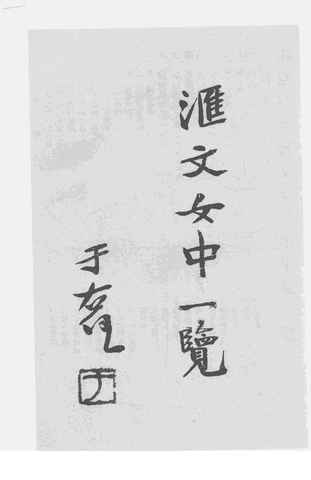 滙文女中一覽
于右任
于